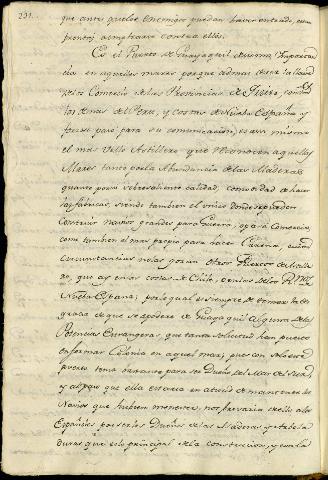 231.
que antes que los Enemigos puedan haver entrado, esten
promptos a contrarse contra ellos.
Es el Puerto de Guayaquil de suma Importan
cia en aquellos mares porque ademas de ser la llave
de los Comercios de las Provincias de Tierra, con
los demas del Peru, y Costas de Nueva España y
forzoso paso para su comunicacion, es assi mismo
el mas util Astillero que se conoce en aquellos
Mares tanto por la Abundancia de las Maderas
quanto por su sobresaliente calidad, comodidad de hacer
las fabricas, siendo tambien el unico donde se pueden
Construir navios grandes para Guerra, o para Comercio,
como tambien el mas propio para hacer Carena, cuias
Circunstancias no las gozan otros Puertos de
que ay en las costas de Chile, o en las de los
Nueva España; por lo qual es siempre de temer la des
gracia de que se apodere de Guayaquil alguna de las
Potencias Estrangeras, que tanta solicitud han puesto
en formar Colonia en aquel mar, pues con solo este
puerto tenia bastante para ser Dueña del Mar del Sur,
y al paso que ella estaria en estado de mantener los
Navios que hubiere menester, nos privaria de ello a los
Españoles por serlos Dueños de las Maderas y
duras que es lo principal de la construccion, y con la